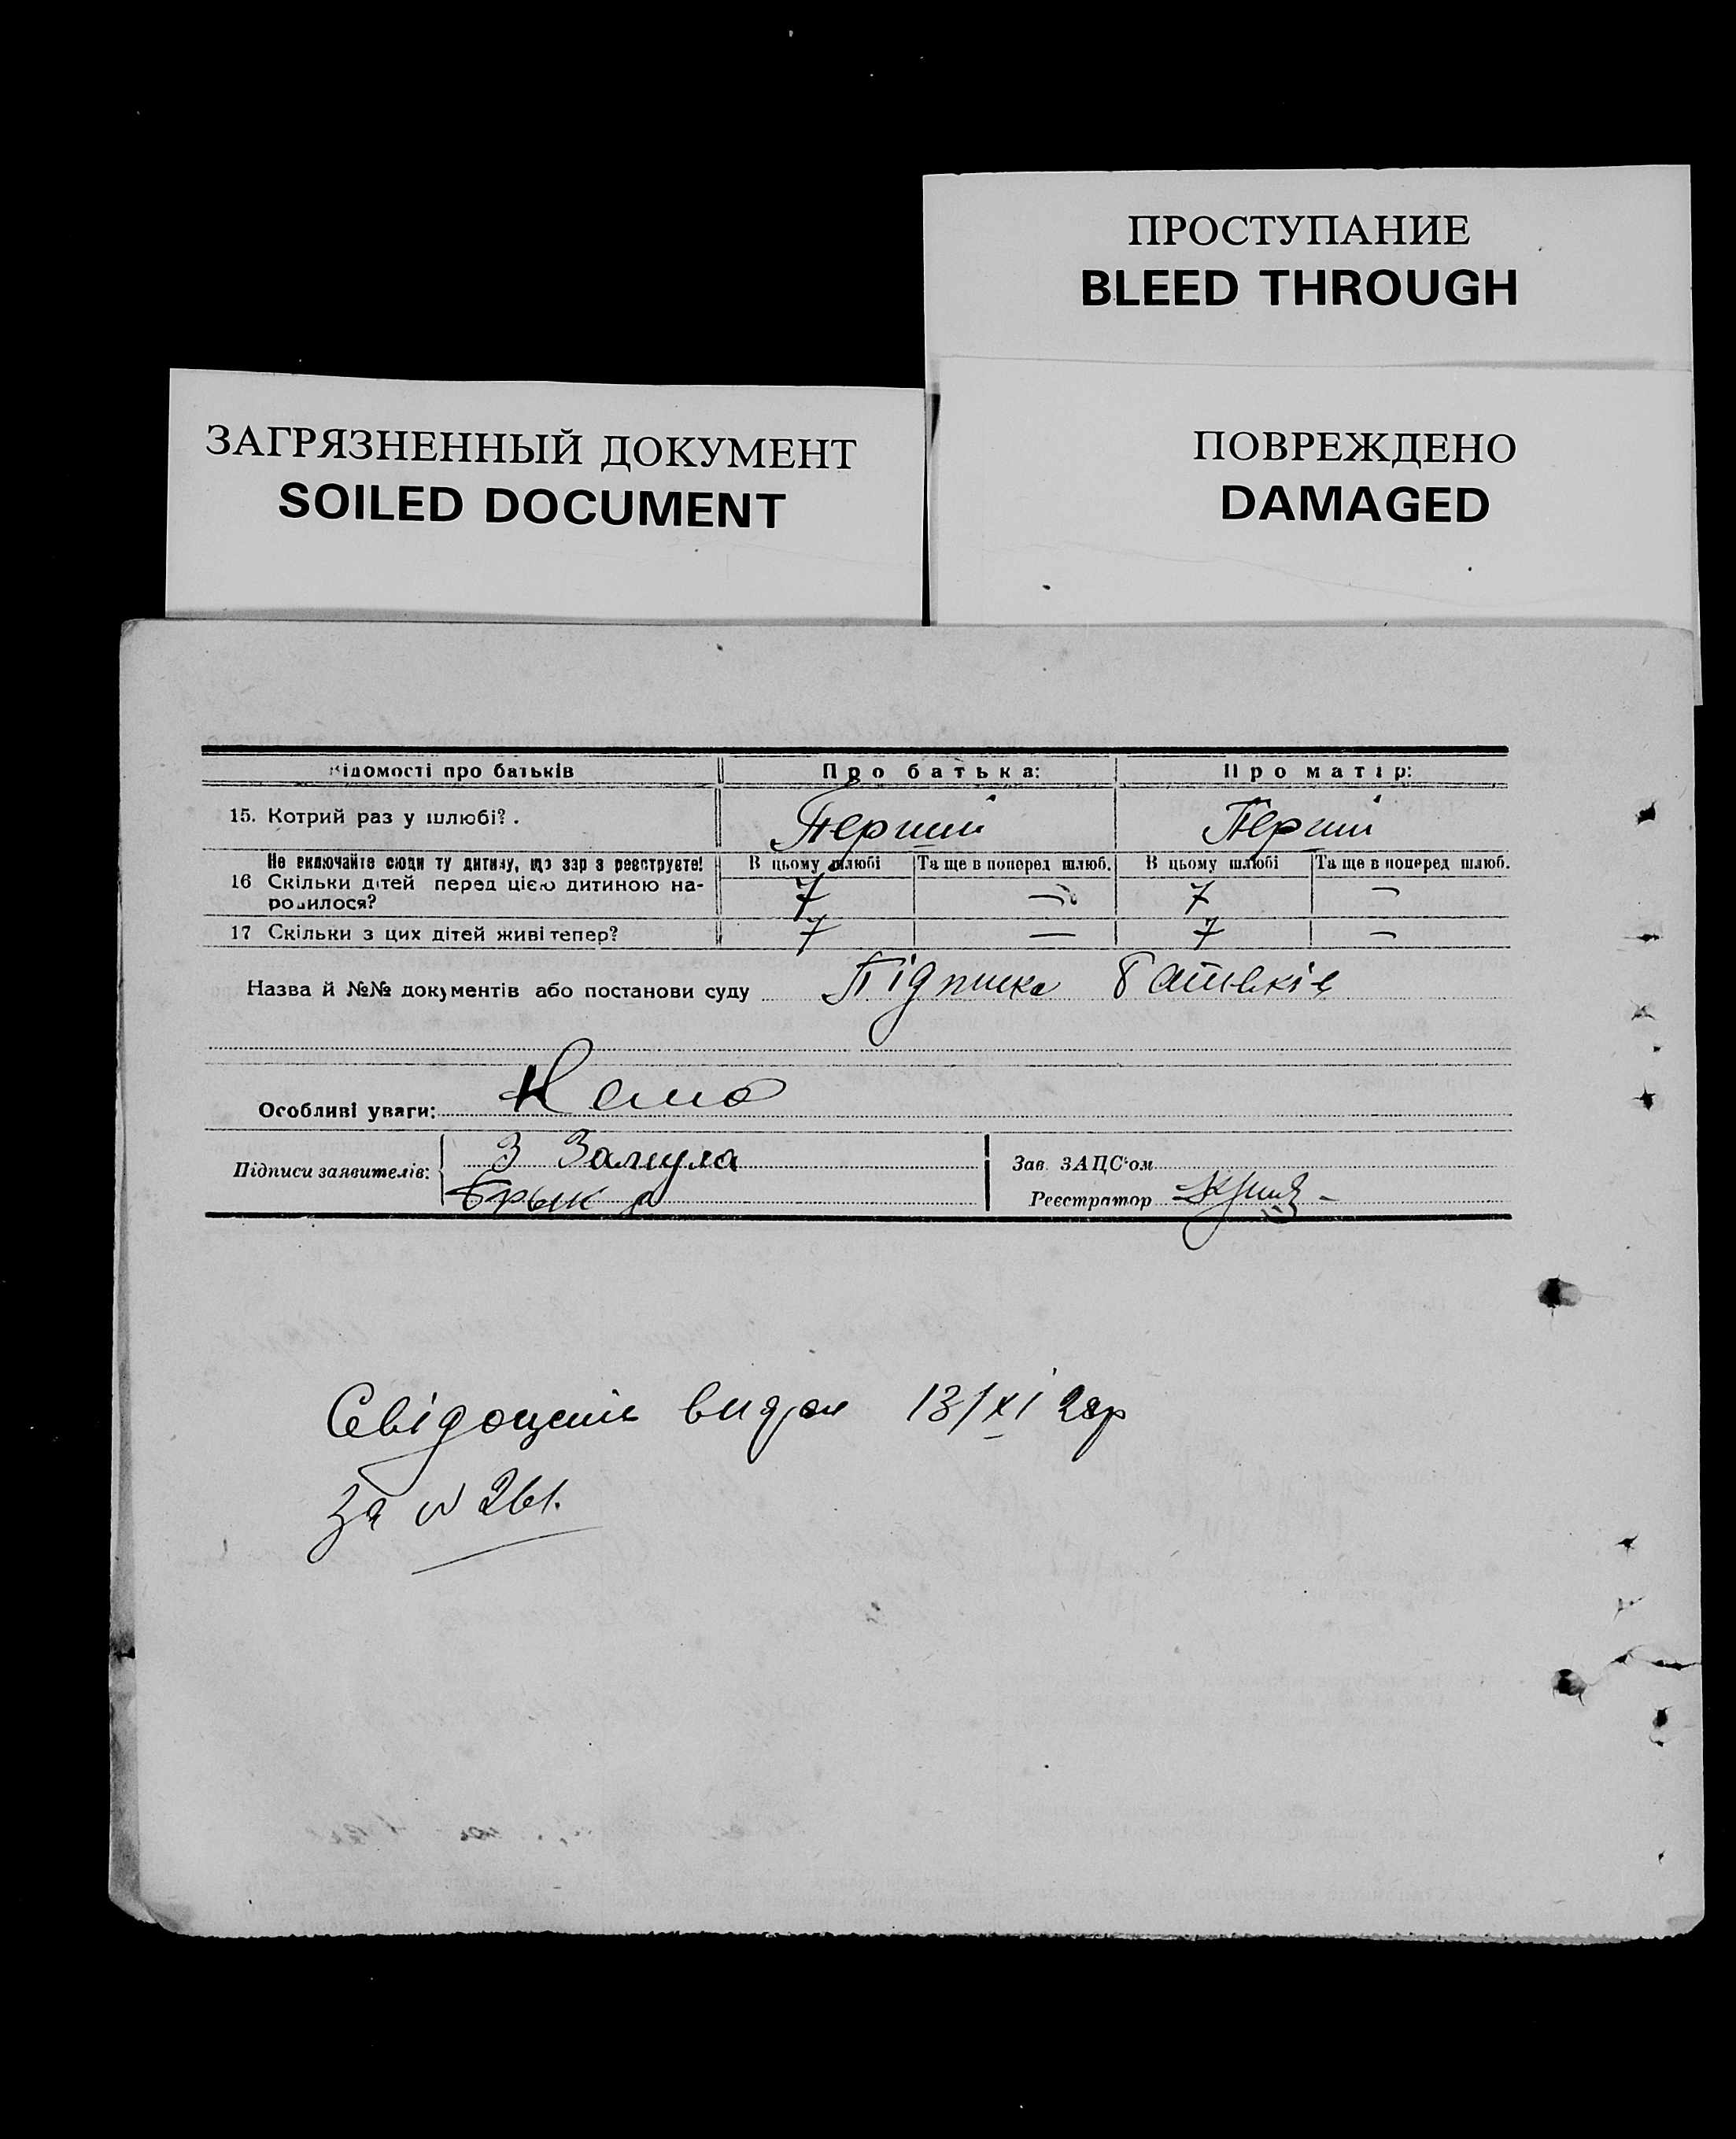 ПРОСТУПАНИЕ
BLEED THROUGH
ЗАГРЯЗНЕННЫЙ ДОКУМЕНТ
SOILED DOCUMENT
ПОВРЕЖДЕНО
DAMAGED
Відомості про батьків Про батька: Про матір:
15. Котрий раз у шлюбі?. Перший Перший
Не включайте сюди ту дитину, що зараз реєструєте! В цьому шлюбі Та ще в поперед шлюб. В цьому шлюбі Та ще в поперед шлюб.
16 Скільки дітей перед цією дитиною на-
родилося? 7 — 7 —
17 Скільки з цих дітей живі тепер? 7 — 7 —
Назва й №№ документів або постанови суду Підписка батьків
Особливі уваги: Нема
Підписи заявителів: З Замула
Зав. ЗАЦС'ом
Реєстратор
Свідоцтво видан 13/XI 28р
За № 261.